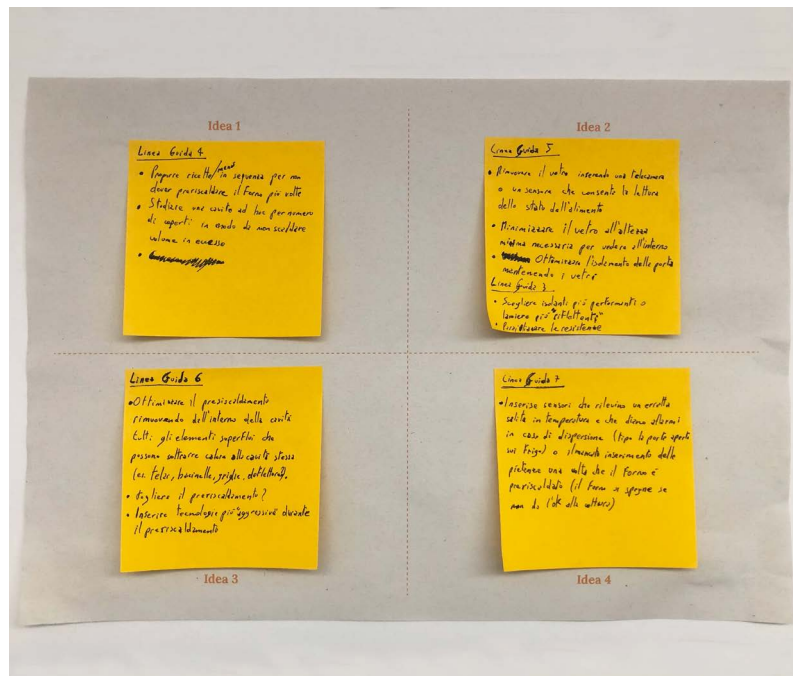 Idea 1
Linea Guida 4
• Proporre ricette/menù in sequenza per non
dover preriscaldare il forno più volte
• Studiare una cavità ad hoc per numero
di coperti in modo da non scaldare
volume in eccesso
Idea 2
Linea Guida 5
• Rimuovere il vetro inserendo una telecamera
o un sensore che consente la lettura
dello stato dell'alimento
• Minimizzare il vetro all'altezza
minima necessaria per vedere all'interno
• Ottimizzare l'isolamento della porta
mantenendo i vetri
Linea Guida 3
• Scegliere isolanti più performanti o
lamiere più "riflettenti"
• le resistenze
Linea Guida 6
• Ottimizzare il preriscaldamento
rimuovendo dall'interno della cavità
tutti gli elementi superflui che
possono sottrarre calore alla cavità stessa
(es. teglie, griglie,
• Togliere il preriscaldamento?
• Inserire tecnologie più "aggressive" durante
il preriscaldamento
Idea 3
Linea Guida 7
• Inserire sensori che rilevino un'errata
salita in temperatura e che diano allarmi
in caso di dispersione (tipo la porta aperta
sui frigo) o il mancato inserimento delle
pietanze una volta che il forno è
preriscaldato (il forno si spegne se
non do l'ok alla cottura)
Idea 4